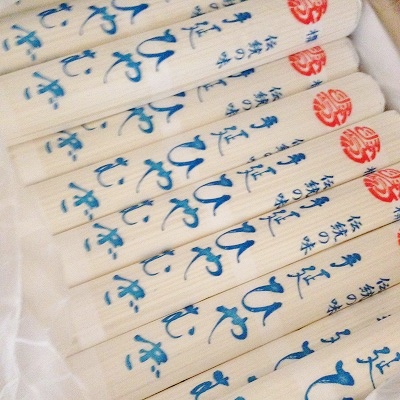 伝統の味
手延
ひやむぎ
伝統の味
手延
ひやむぎ
伝統の味
手延
ひやむぎ
伝統の味
手延
ひやむぎ
伝統の味
手延
ひやむぎ